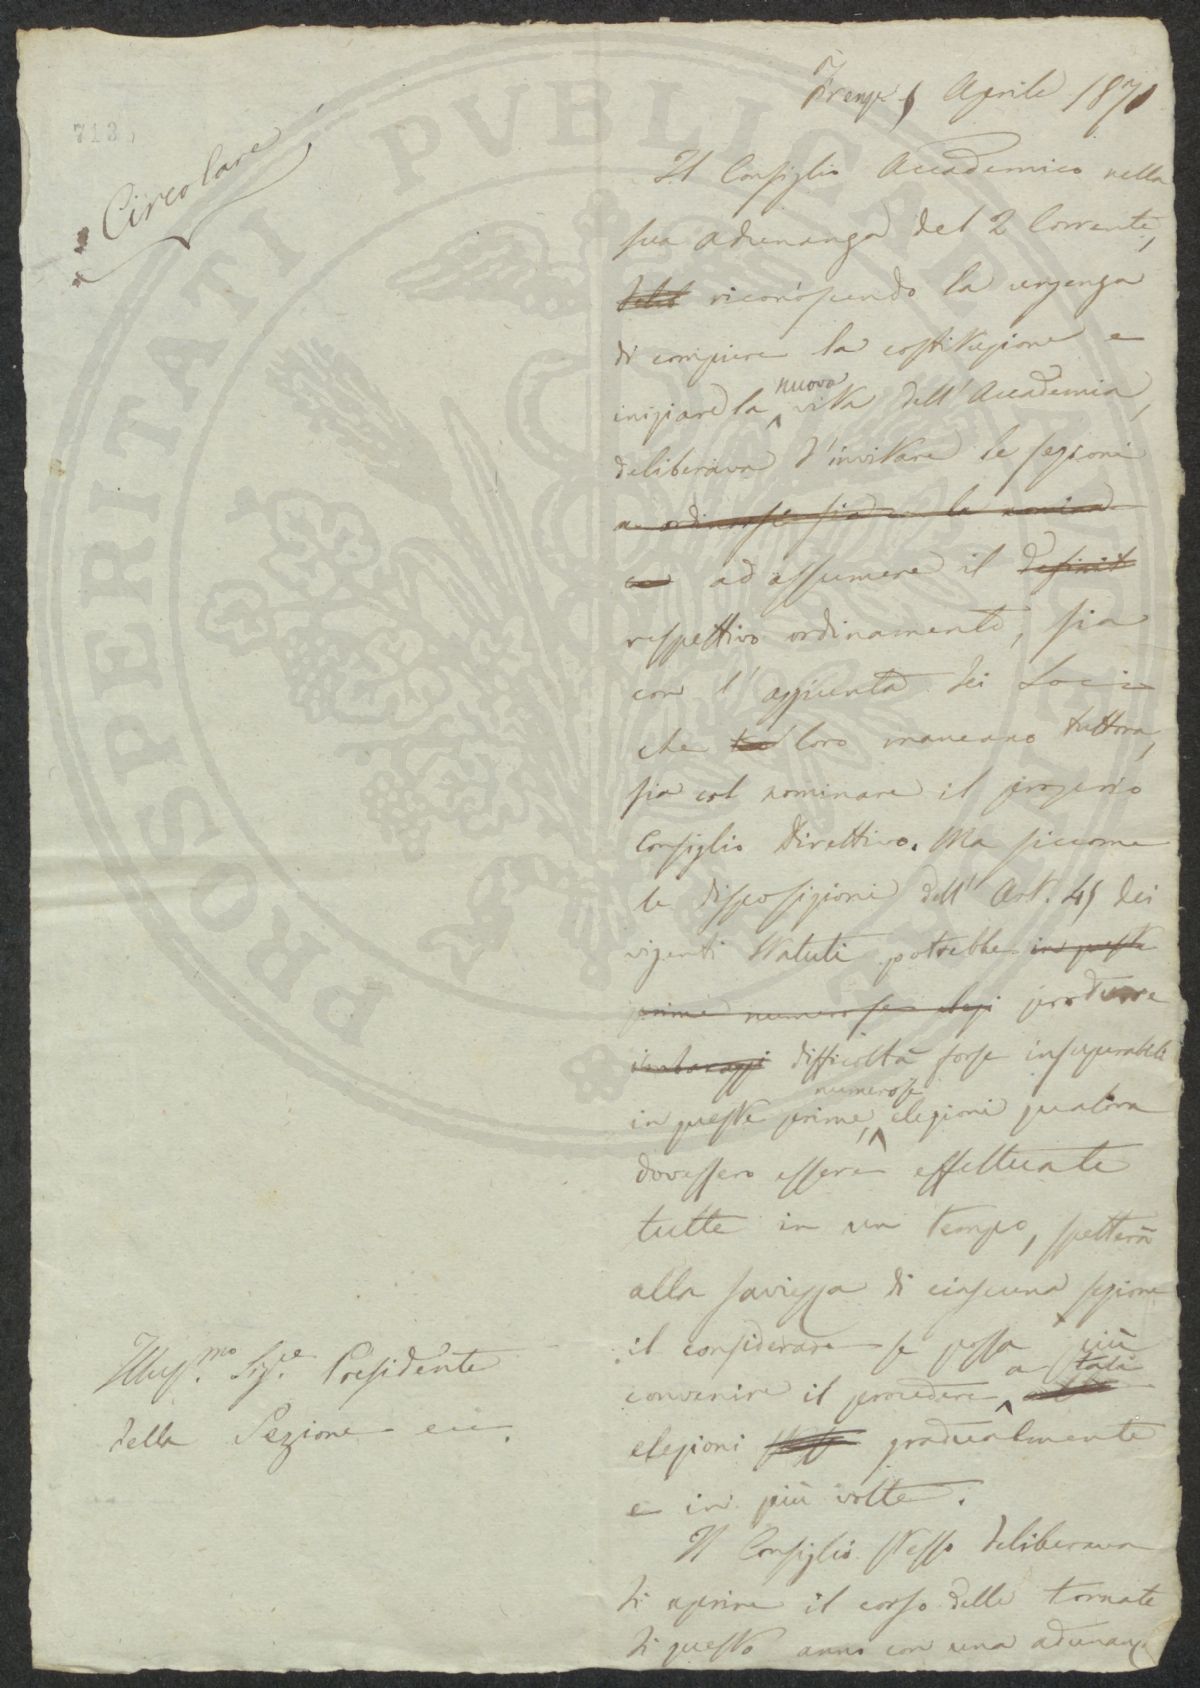 Firenze 5 Aprile 1871
713
Circolare
Il Consiglio Accademico nella
sua adunanza del 2 Corrente,
delib riconoscendo la urgenza
di compiere la costituzione e
iniziare la nuova vita dell'Accademia,
deliberava d'invitare le sezioni
a ordinarsi sia con la nomina
ad assumere il definit
respettivo ordinamento, sia
con l'aggiunta dei Soci
che loro mancano tuttora,
sia col nominare il proprio
Consiglio Direttivo. Ma siccome
le disposizioni dell'Art. 45 dei
vigenti Statuti potrebbe in queste
prime numerose elezi produrre
imbarazzi difficoltà forse insuperabili
in queste prime, numerose elezioni qualora
dovessero essere effettuate
tutte in un tempo, spetterà
alla saviezza di ciascuna sezione
il considerare se possa più
convenire il procedere a tali
elezioni gradualmente
e in più volte.
Il Consiglio stesso deliberava
di aprire il corso delle tornate
di questo anno con una adunanza
Illuss.mo Sig.re Presidente
della Sezione ecc.
PROSPERITATI PVBLICAE